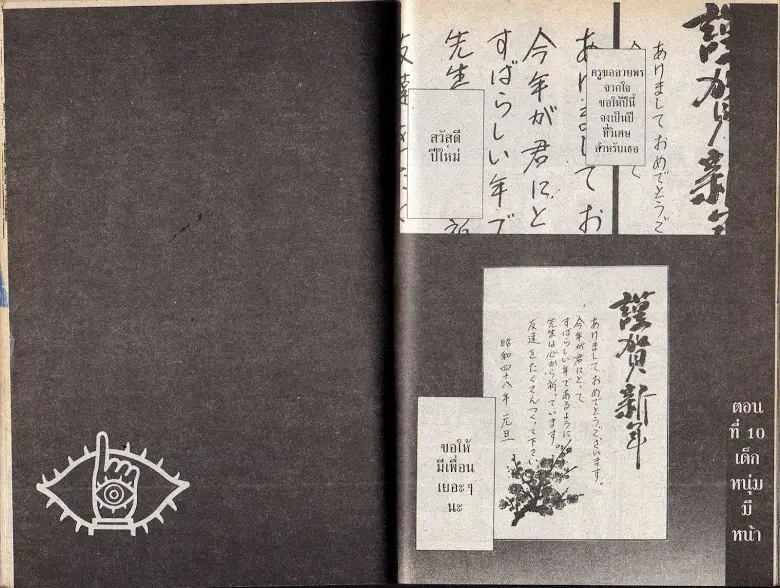 謹賀新年
あけましておめでとうご
あけましてお
今年が君にと
すばらしい年で
先生
ครูขออวยพร
จากใจ
ขอให้ปีนี้
จงเป็นปี
ที่วิเศษ
สำหรับเธอ
สวัสดี
ปีใหม่
謹賀新年
あけましておめでとうございます。
今年が君にとって
すばらしい年であるように
先生は心から祈っています。
友達をたくさんつくって下さい
昭和四十八年 元旦
ขอให้
มีเพื่อน
เยอะๆ
นะ
ตอน
ที่ 10
เด็ก
หนุ่ม
มี
หน้า